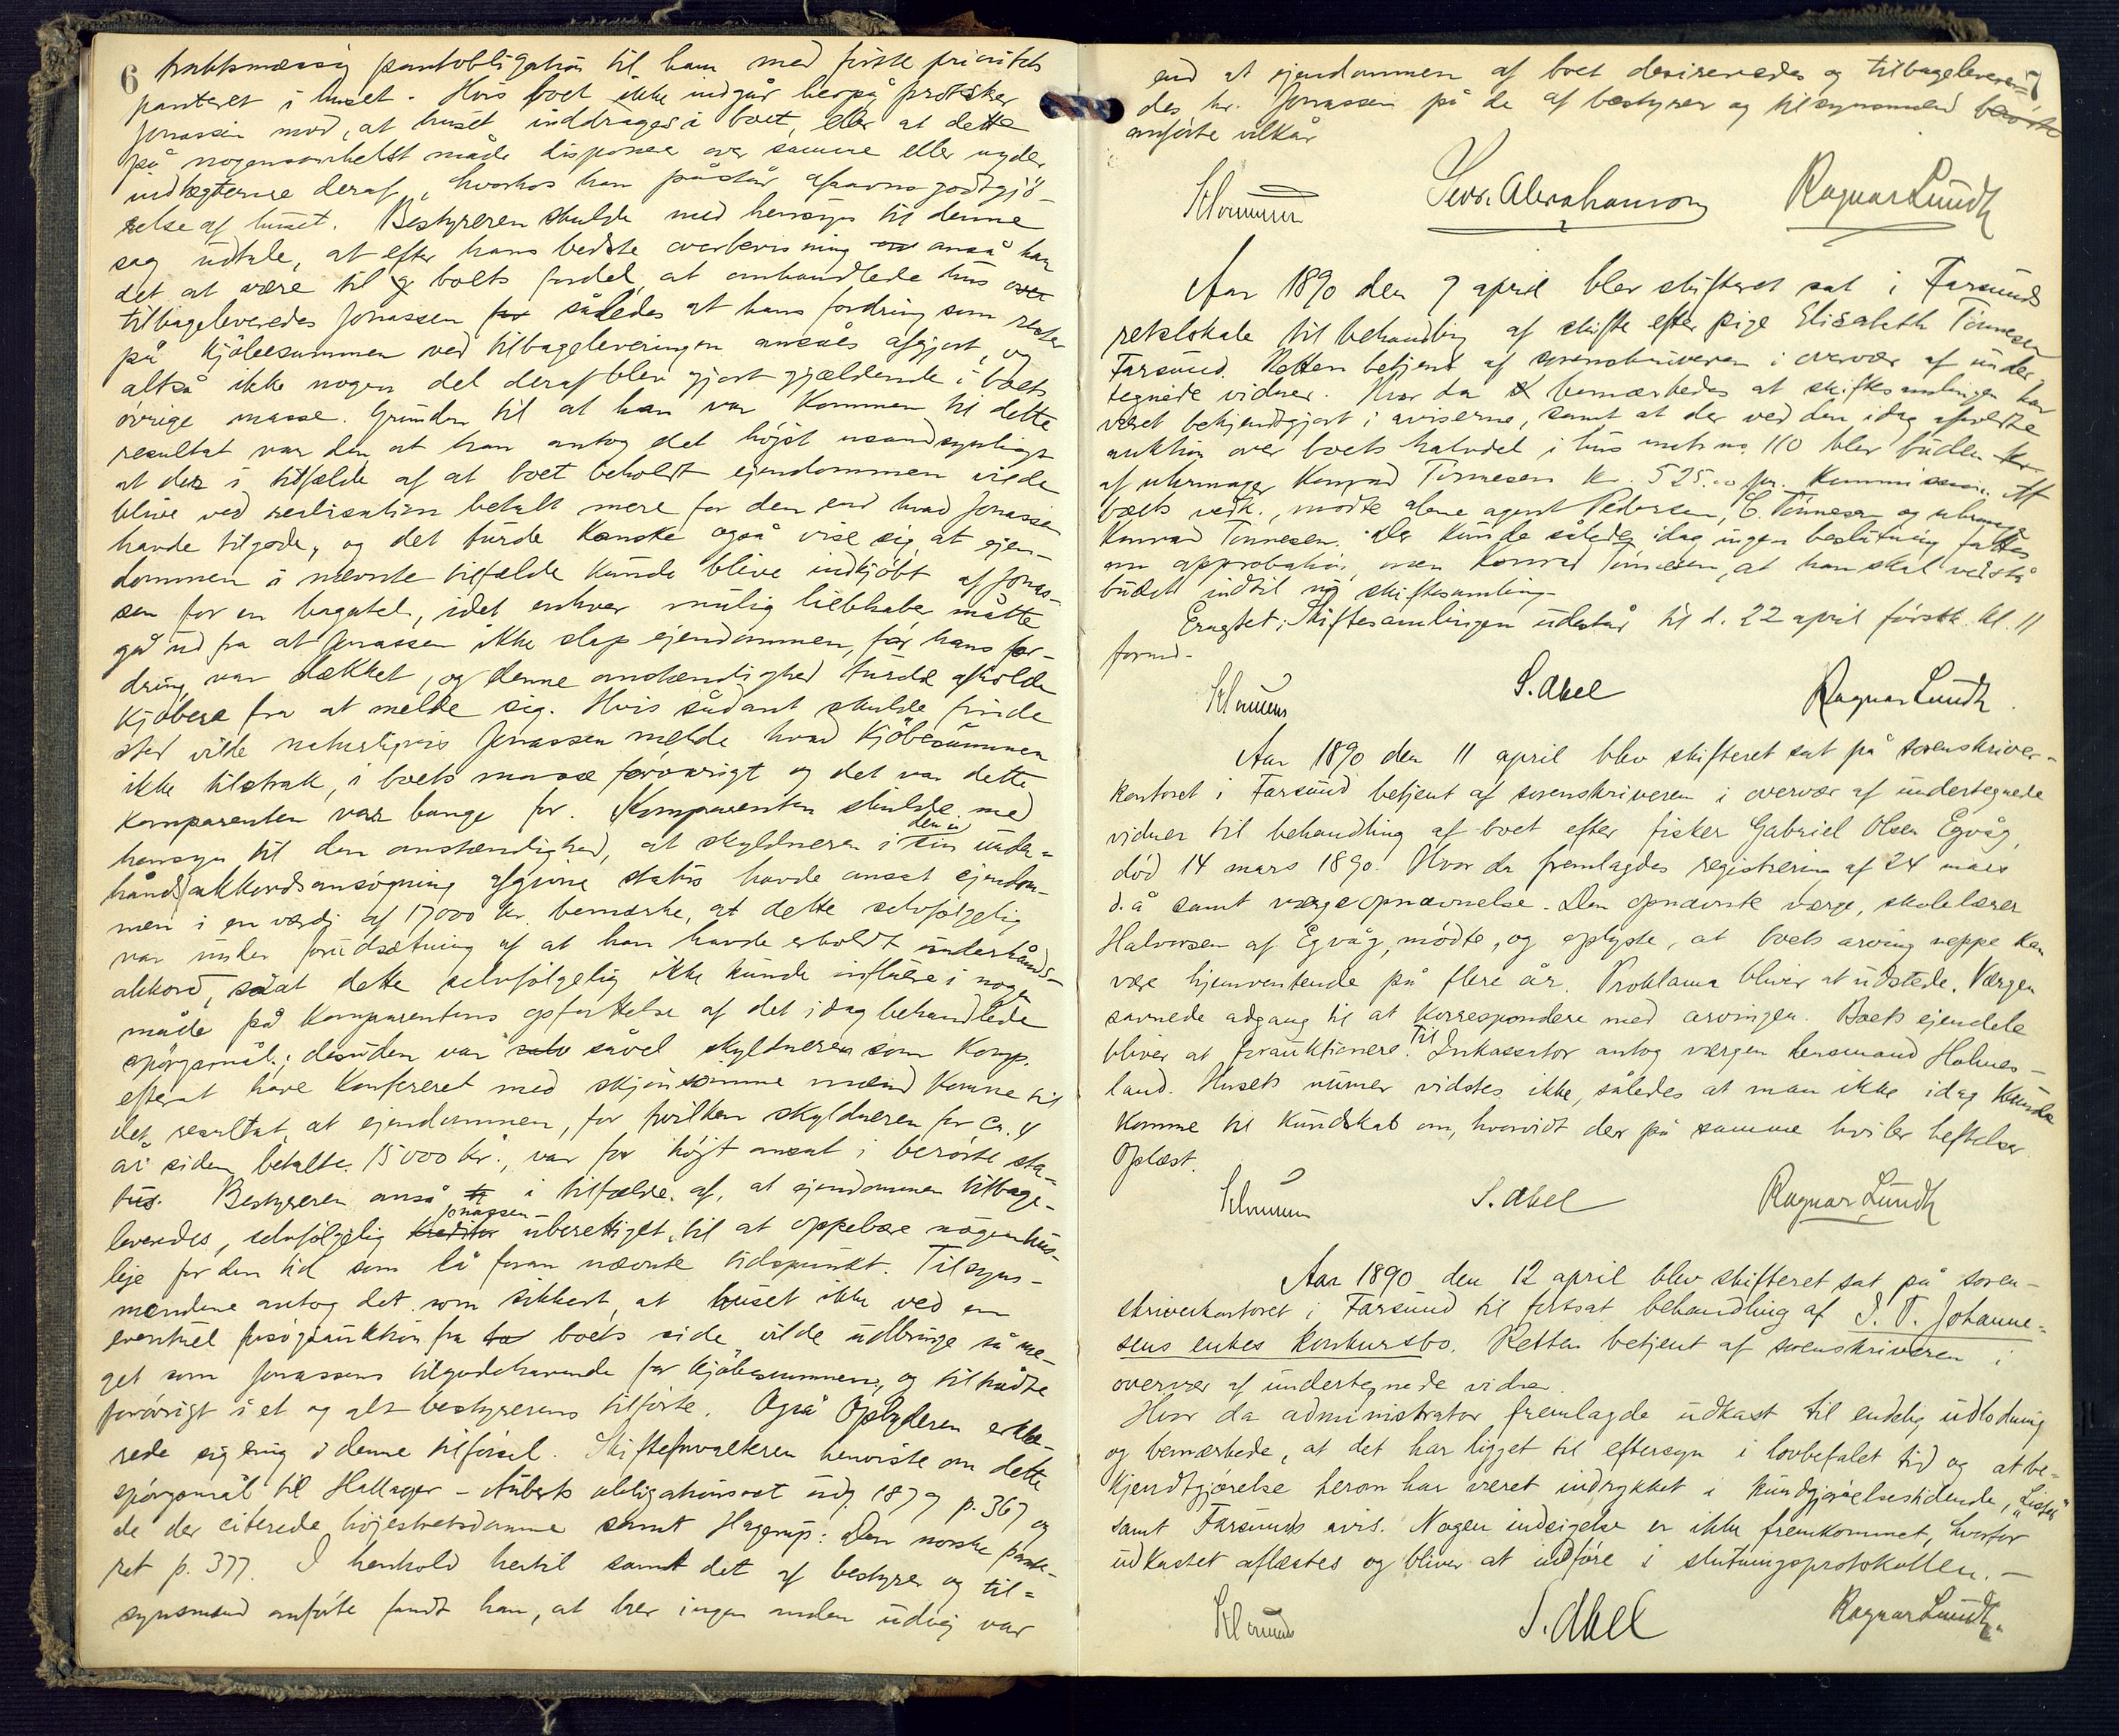 6
traktsmæssig pantobligation til ham med første prioritets
panteret i huset. Hvis boet ikke indgår herpå protesterer
Jonassen mod, at huset inddrages i boet, eller at dette
på nogensomhelst måde disponerer over samme eller nyder
indtægterne deraf, hvorhos han påstår afsavnsgodtgjö-
relse af huset. Bestyreren skulde med hensyn til denne
sag udtale, at efter hans bedste overbevisning anså han
det at være til boets fordel, at omhandlede hus
tilbageleveredes Jonassen således at hans fordring som rester
på kjöbesummen ved tilbageleveringen ansåes afgjort, og
altså ikke nogen del deraf blev gjort gjældende i boets
övrige masse. Grunden til at han var kommen til dette
resultat var den at han antog det höjst usandsynligt
at der i tilfælde af at boet beholdt ejendommen vilde
blive ved realisation betalt mere for den end hvad Jonassen
havde tilgode, og det turde kanske også vise sig at ejen-
dommen i nævnte tilfælde kunde blive indkjöbt af Jonas-
sen for en bagatel, idet enhver mulig liebhaber måtte
gå ud fra at Jonassen ikke slap ejendommen, för hans for-
dring var dækket, og denne omstændighed turde afholde
kjöbere fra at melde sig. Hvis sådant skulde finde
sted vilde naturligvis Jonassen melde hvad kjöbesummen
ikke tilstrak, i boets masse forövrigt og det var dette
komparenten var bange for. Komparenten skulde med
hensyn til den omstændighed, at skyldneren i den i sin under-
håndsakkordsansögning afgivne status havde ansat ejendom-
men i en værdi af 17000 kr. bemærke, at dette selvfölgelig
var under forudsætning af at han havde erholdt underhånds-
akkord, såat dette selvfölgelig ikke kunde influere i nogen
måde på komparentens opfattelse af det idag behandlede
spörgsmål; desuden var såvel skyldneren som komp.
efterat have konfereret med skjönsomme mænd komne til
det resultat at ejendommen, for hvilken skyldneren for ca. 4
år siden betalte 15000 kr., var for höjt ansat i berörte sta-
tus. Bestyreren anså i tilfælde af, at ejendommen tilbage-
leveredes, selvfölgelig kreditor Jonassen uberettiget til at oppebære nogen hus-
leje for den tid som lå foran nævnte tidspunkt. Tilsyns-
mændene antog det som sikkert, at huset ikke ved en
eventuel forsögsauktion fra boets side vilde udbringe så me-
get som Jonassens tilgodehavende for kjöbesummen, og tiltrådte
forövrigt i et og alt bestyrerens tilförte. Også Opbyderen erklæ-
rede sig enig i denne tilförsel. Skifteforvalteren henviste om dette
spörgsmål til Hallager - Auberts obligationsret udg 1879 p. 367 og
de der citerede höjesteretsdomme samt Hagerup: Den norske pante-
ret p. 377. I henhold hertil samt det af bestyrer og til-
synsmænd anförte fandt han, at her ingen anden udvej var
7
end at ejendommen af boet tilbagelevere-
des hr. Jonassen på de af bestyrer og tilsynsmænd
anförte vilkår
Sevr. Abrahamson Ragnar Lundh
Aar 1890 den 9 april blev skifteret sat i Farsunds
retslokale til behandling af skifte efter pige Elisabeth Tönnesen
Farsund. Retten betjent af sorenskriveren i overvær af under-
tegnede vidner. Hvor da bemærkedes at skiftesamlingen har
været bekjendtgjort i aviserne, samt at der ved den idag afholdte
auktion over boets halvdel i hus matr no. 110 blev buden
af uhrmager Konrad Tönnesen kr. 525.00 pr. Kommission. Af
boets vedk. mödte alene agent Pedersen, C. Tönnesen og uhrmager
Konrad Tönnesen. Der kunde således idag ingen beslutning fattes
om approbation, men Konrad Tönnesen, at han skal vedstå
budet indtil ny skiftesamling.
Eragtet; Skiftesamlingen udstår til d. 22 april förstk. kl. 11
formd.
S. Abel Ragnar Lundh.
Aar 1890 den 11 april blev skifteret sat på sorenskriver-
kontoret i Farsund betjent af sorenskriveren i overvær af undertegnede
vidner til behandling af boet efter fisker Gabriel Olsen Egvåg,
död 14 mars 1890. Hvor da fremlagdes registrering af 24 mars
d. å samt værgeopnævnelse. Den opnævnte værge, skolelærer
Halvorsen af Egvåg, mödte, og oplyste, at boets arving neppe kan
være hjemventende på flere år. Proklama bliver at udstede. Værgen
savnede adgang til at korrespondere med arvingen. Boets ejendele
bliver at forauktionere. Til Inkassator antog værgen lensmand Holmes-
land. Husets numer vidstes ikke, således at man ikke idag kunde
komme til kundskab om, hvorvidt der på samme hviler heftelser
Oplæst.
S. Abel Ragnar Lundh
Aar 1890 den 12 april blev skifteret sat på soren-
skriverkontoret i Farsund til fortsat behandling af J. T. Johanne-
sens enkes konkursbo. Retten betjent af sorenskriveren i
overvær af undertegnede vidner.
Hvor da administrator fremlagde udkast til endelig udlodning
og bemærkede, at det har ligget til eftersyn i lovbefalet tid og at be-
kjendtgjörelse herom har været indrykket i kundgjörelsestidende, "Lister"
samt Farsunds avis. Nogen indsigelse er ikke fremkommet, hvorfor
udkastet aflæstes og bliver at indföre i slutningsprotokollen. —
S. Abel Ragnar Lundh